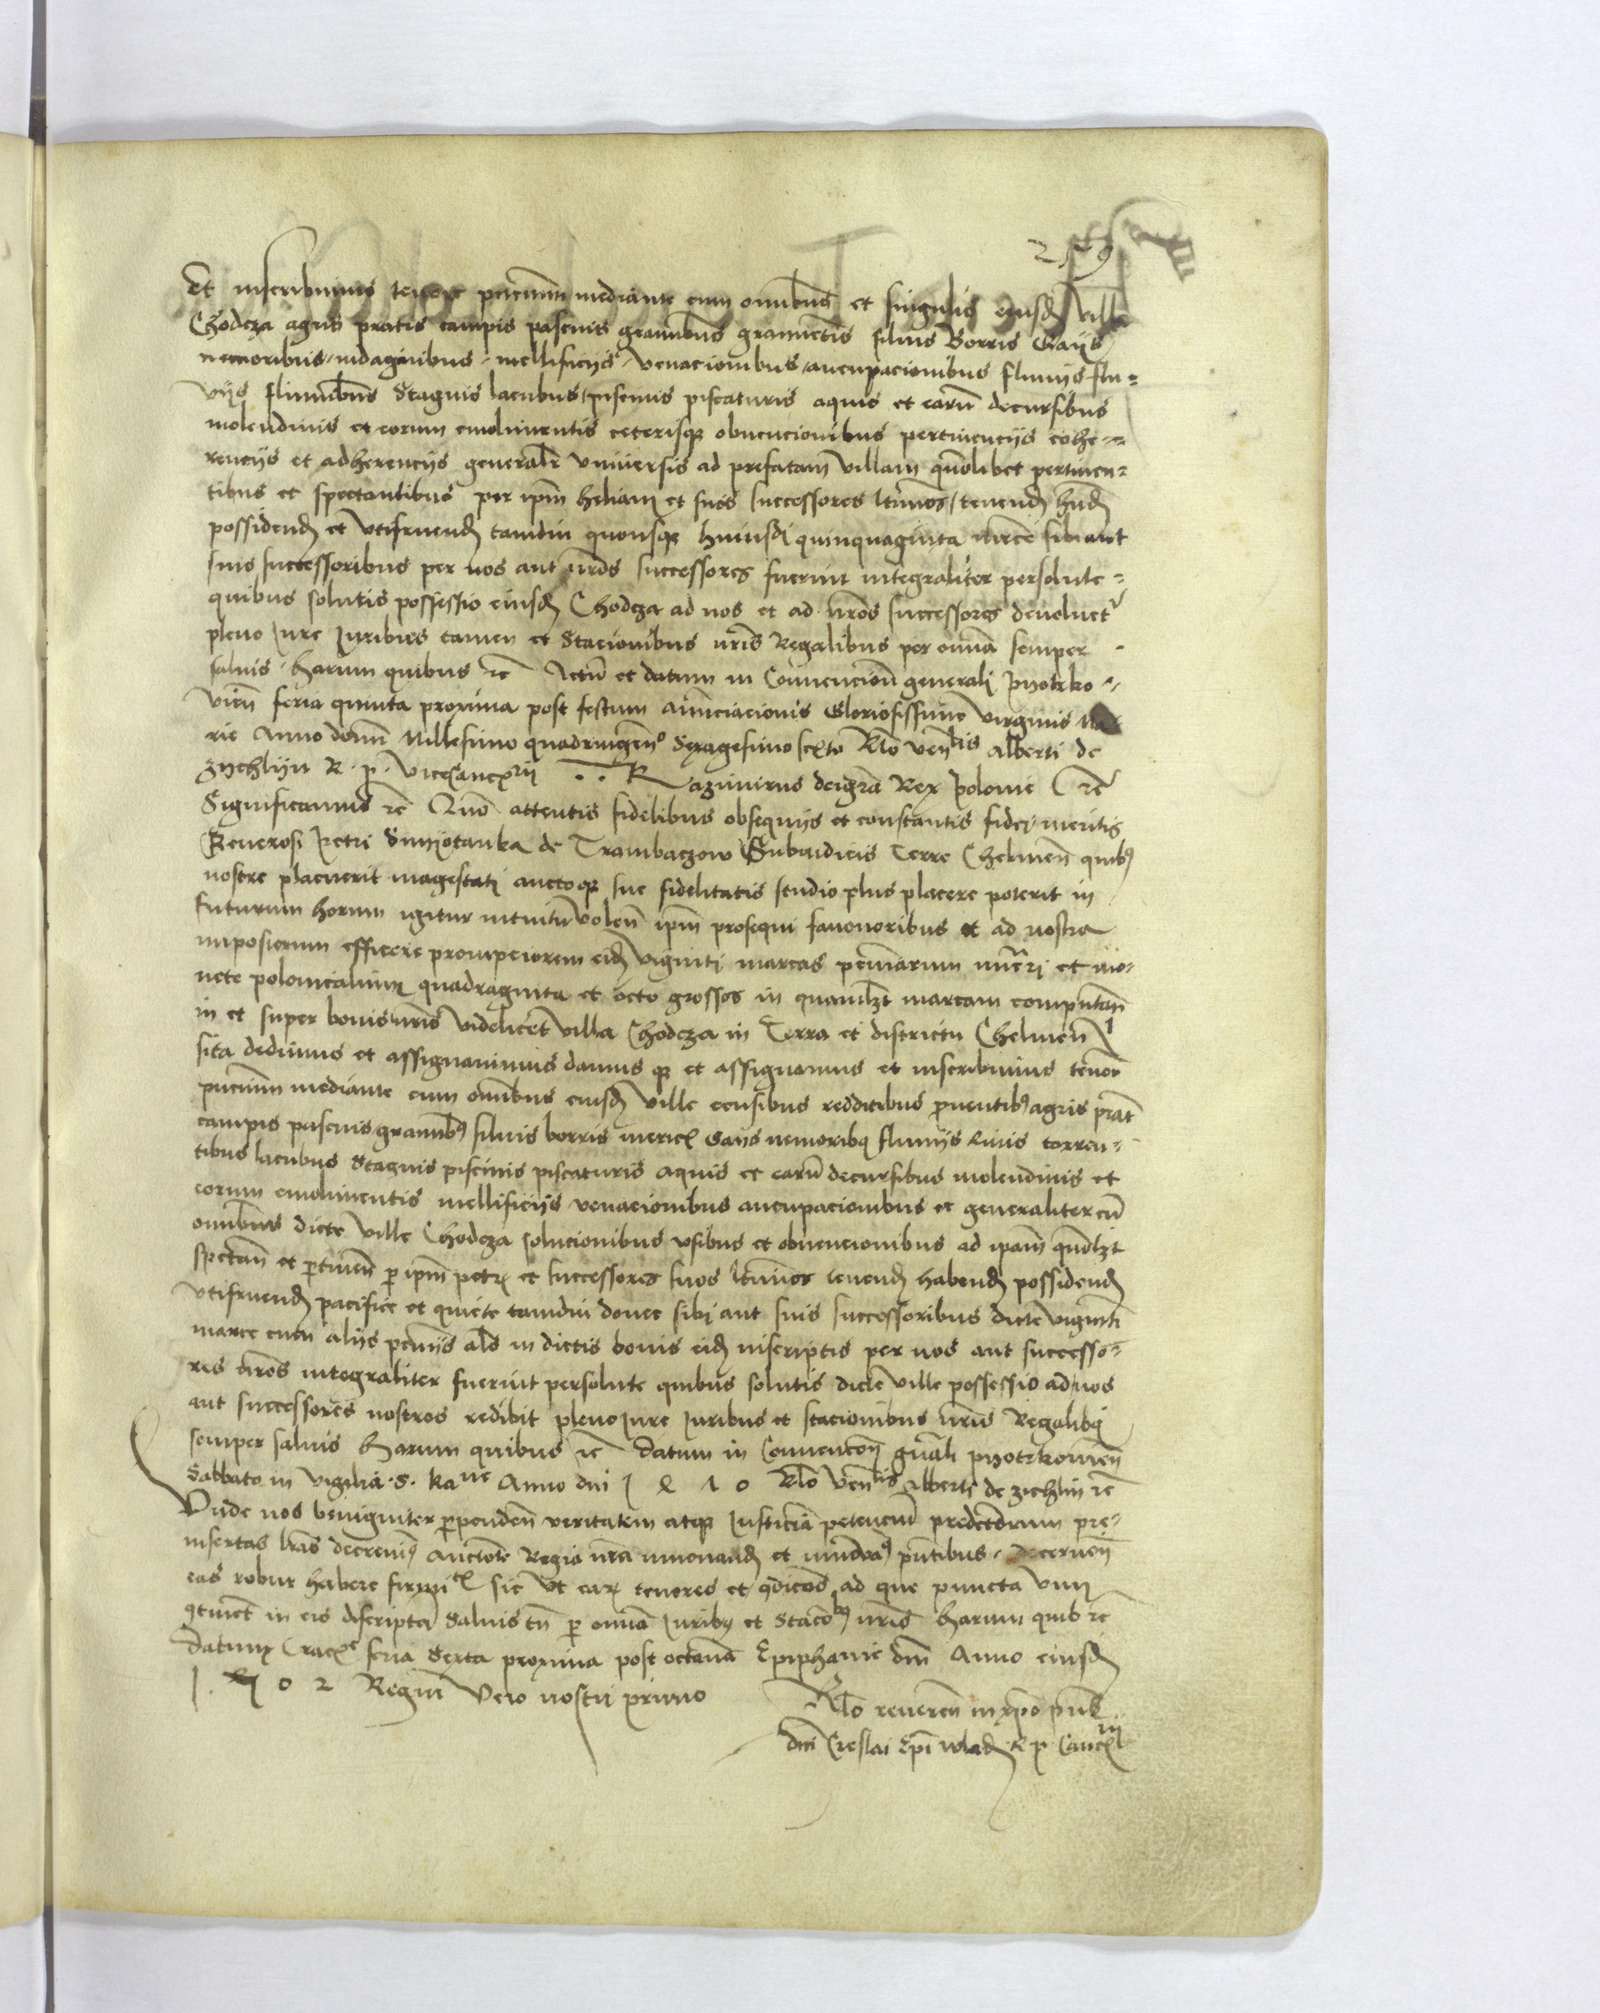 259
Et inscribimus tenore pncium mediante cum omnibus et singulis eiusd villa
Chodcza agris pratis campis pascuis graminibus gramictis siluis Borris Gayis
nemoribus indaginibus mellificijs venacionibus aucupacionibus fluuijs flu=
vijs fluminibus Stagnis lacubus piscinis piscaturis aquis et earum decursibus
molendinis et eorum emolimentis ceterisque obuencionibus pertinencijs cohe=
rencijs et adherencijs generaliter vniuersis ad prefatam villam quomolibet pertinen=
tibus et spectantibus per ipm heliam et suos successores ltimos tenend hnd
possidend et vtifruend tamdiu quousque huiusdi quinquaginta mrce sibi aut
suis successoribus per nos aut nros successores fuerint integraliter persolute
quibus solutis possessio eiusd Chodcza ad nos et ad nros successores deuoluet
pleno Iure Iuribus tamen et Stacionibus nris Regalibus per omnia semper
saluis harum quibus etc Actum et datum in Convencione generali pyotrko=
vien feria quinta proxima post festum annunciacionis Gloriosissime virginis Ma
rie Anno domini Millesimo quadringen Sexagesimo sexto Rlo venlis Alberti de
zychlyn R. p. vicecancrij Kazimirus dei gra Rex polonie etc
Significamus etc Quo attentis fidelibus obsequijs et constantis fidei meritis
Generosi petri Smyotanka de Trambaczow Subiudicis Terre Chelmen quibus
nostre placuerit magestati auctoque sue fidelitatis studio plus placere poterit in
futurum horum igitur intuitu volen ipm prosequi fauoribus et ad nostra
imposterum efficere prompciorem eid viginti marcas pecuniarum nuri et mo=
nete polonicalium quadraginta et octo grossos in quamlzt marcam computan
in et super bonis nris videlicet villa Chodcza in Terra et districtu Chelmen
sita dedimus et assignauimus damus que et assignamus et inscribimus tenor
pncium mediante cum omnibus eiusd ville censibus redditibus prouentibus agris prat
campis pascuis graminibus siluis borris mericis Gays nemoribus fluuijs Riuis torren=
tibus lacubus Stagnis piscinis piscaturis aquis et earum decursibus molendinis et
eorum emolimentis mellificijs venacionibus aucupacionibus et generaliter cum
omnibus dicte ville Chodcza solucionibus vsibus et obuencionibus ad ipam quolzt
spectan et pertinen per ipm petrum et successores suos ltimos tenend habend possidend
vtifruend pacifice et quiete tamdiu donec sibi aut suis successoribus dicte viginti
marce cum alijs pecunijs als in dictis bonis eid inscriptis per nos aut successo=
res nros integraliter fuerint persolute quibus solutis dicte ville possessio ad nos
aut successores nostros redibit pleno Iure Iuribus et stacionibus nris Regalibus
semper saluis harum quibus etc datum in Convencione gnali pyotrkowien
Sabbato in vigilia S. Anno dni Rlo venlis Alberti de zichlin etc
Vnde nos benigniter perpenden veritatem atque Iusticiam petencium predictarum pre=
insertas lras decreuimus Auctote Regia nra innouand et pntibus decernen
eas robur habere firmi sic vt earum tenores et ad que puncta vnu
continet in eis discripta Saluis tn per omnia Iuribus et Stacobus nris harum quib etc
datum Crac feria Sexta proxima post octauam Epiphanie dni Anno eiusd
1 5 0 2 Regni vero nostri primo
Rlo reueren in xpo pris
dni Creslai Epi wlad R p Canc